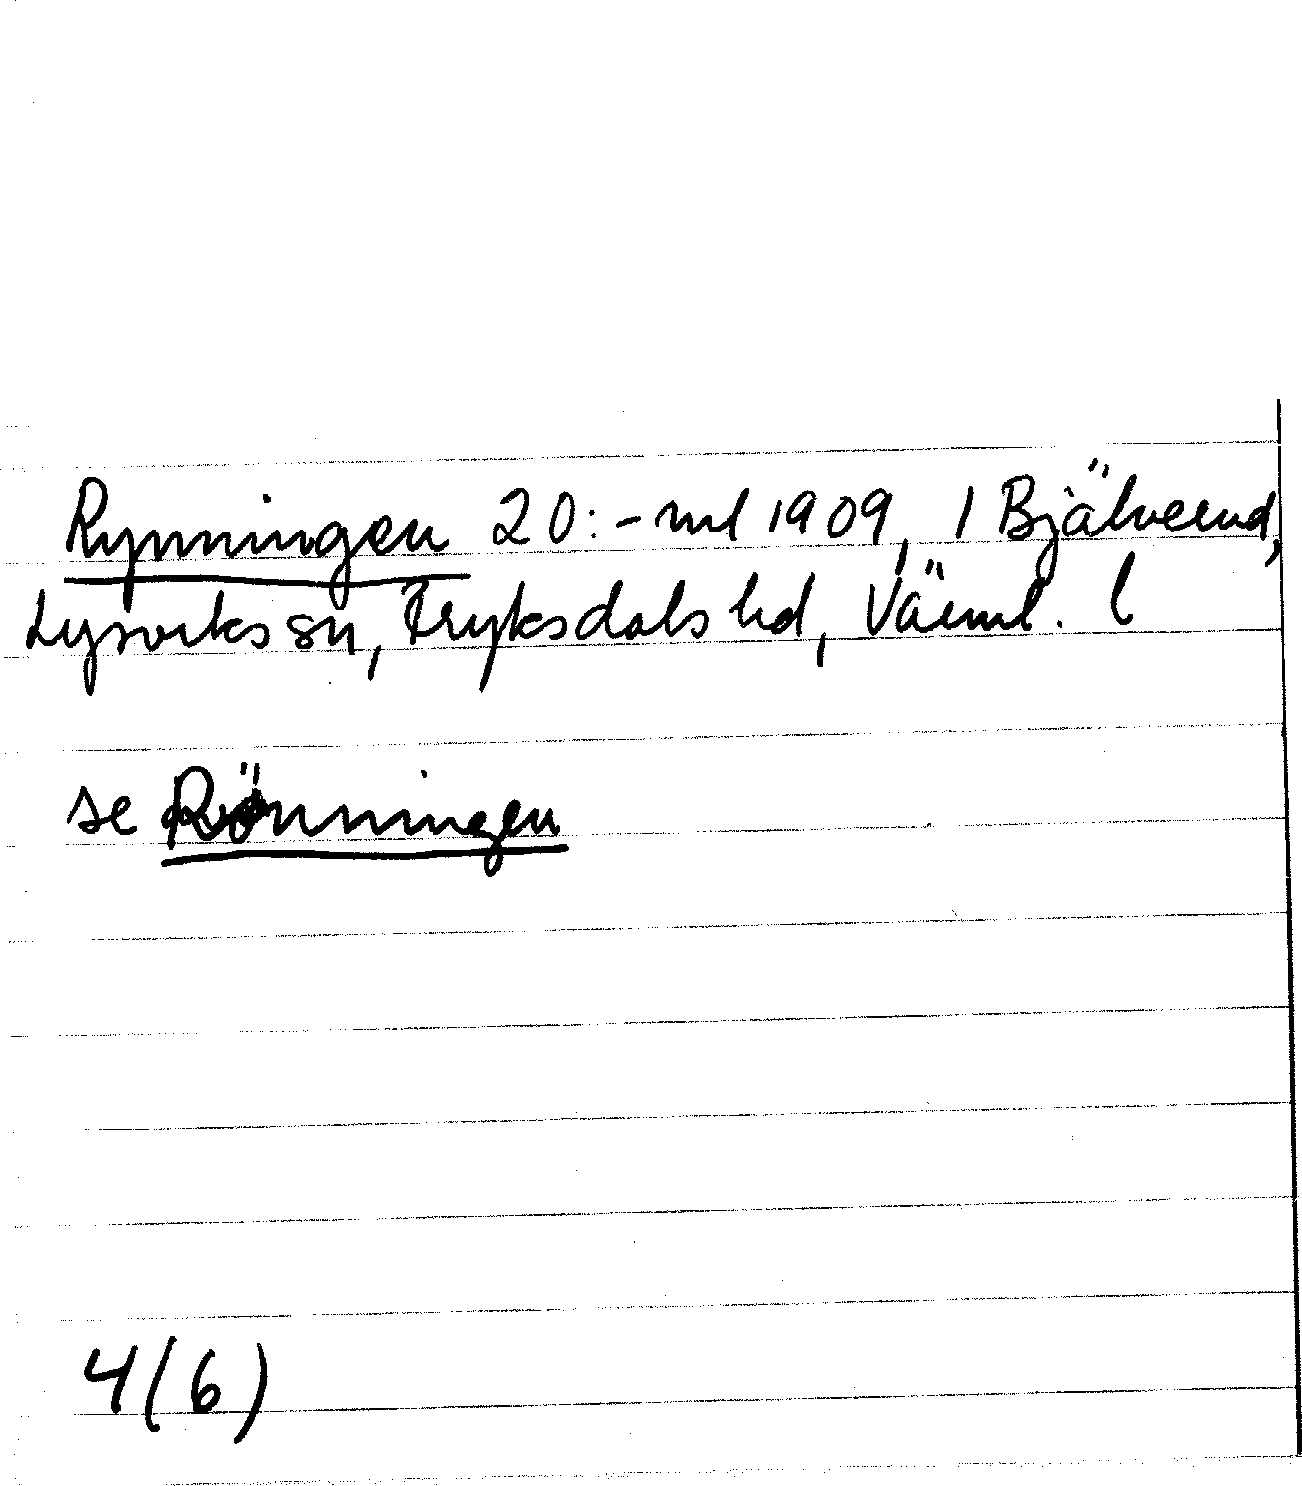 Rynningen 20:- ml 1909, 1 Bjälverud,
Lysviks sn, Fryksdals hd, Värml. l
se Rönningen
4(6)